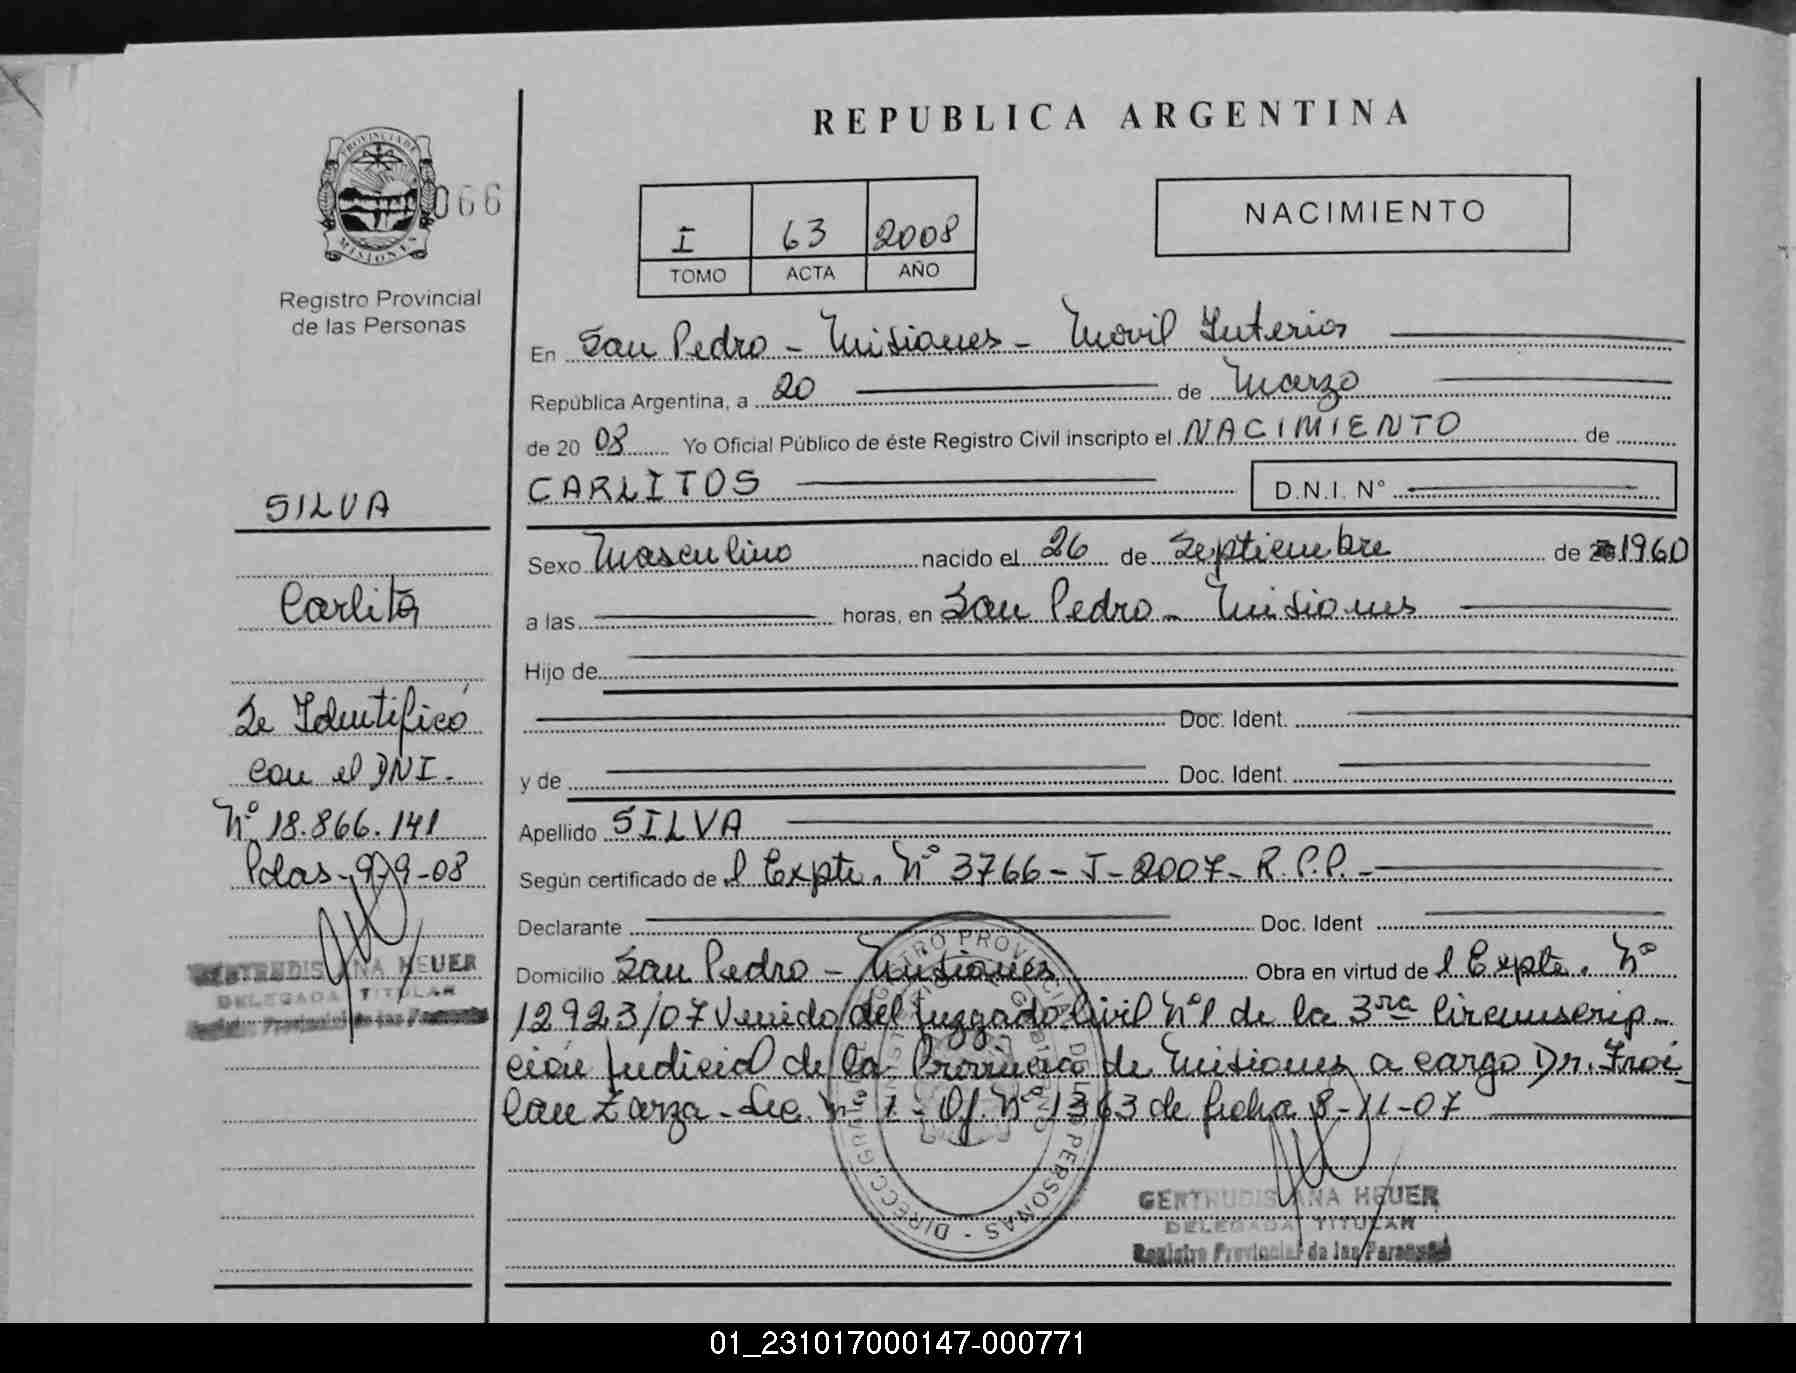 REPUBLICA ARGENTINA
PROVINCIA DE
MISIONES
066
Registro Provincial
de las Personas
I 63 2008
TOMO ACTA AÑO
NACIMIENTO
En San Pedro - Misiones - Movil Interior
República Argentina, a 20 de Marzo
de 20 08 Yo Oficial Público de éste Registro Civil inscripto el NACIMIENTO de
CARLITOS D.N.I. N°
Sexo Masculino nacido el 26 de Septiembre de 1960
a las horas, en San Pedro - Misiones
Hijo de
Doc. Ident.
y de Doc. Ident.
Apellido SILVA
Según certificado de l Expte. Nº 3766 - J - 2007 - R.P.P. -
Declarante Doc. Ident
Domicilio San Pedro - Misiones Obra en virtud de l Expte. Nº
12923/07 Venido del Juzgado Civil Nº1 de la 3ra Circunscrip-
ción Judicial de la Provincia de Misiones a cargo Dr. Froi-
lan Zarza - Sec. Nº 1 - Of. Nº 1363 de fecha 8-11-07
GERTRUDIS ANA HEUER
DELEGADA TITULAR
Registro Provincial de las Personas
SILVA
Carlitos
Se Identificó
con el DNI.
Nº 18.866.141
Pdas - 9-9-08
GERTRUDIS ANA HEUER
DELEGADA TITULAR
Registro Provincial de las Personas
01_231017000147-000771